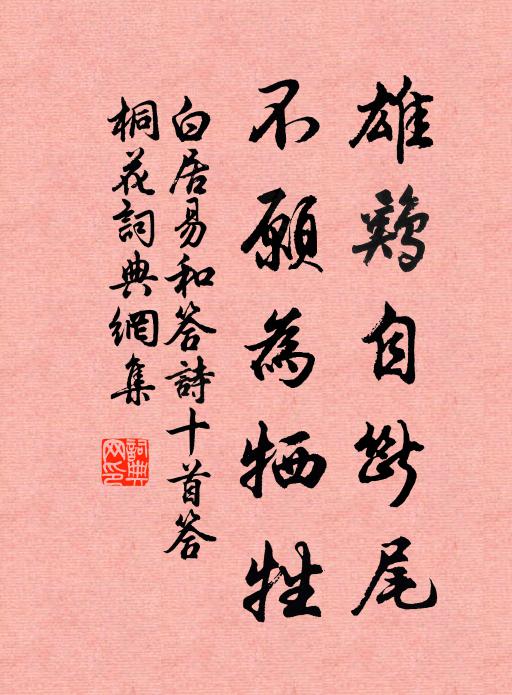 雄鷄自斷尾
不願為牺牲
白居易和答詩十首答
桐花詞典網集
詞典网印